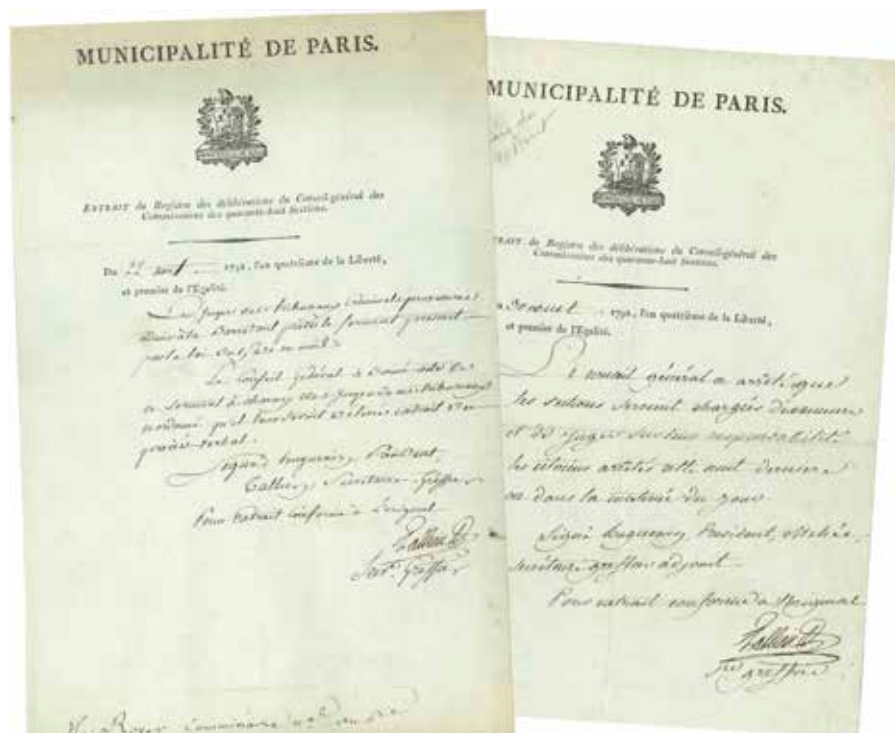 MUNICIPALITÉ DE PARIS.
EXTRAIT du Registre des délibérations du Conseil-général des
Commissaires des quarante-huit Sections.
Du 22 1792, l'an quatrième de la Liberté,
et premier de l'Egalité.
Les Juges des tribunaux criminels provisoires
prêté le serment prescrit
par la loi
Le Conseil général a donné acte de
ce serment à chacun des juges
ordonné qu'il leur serait délivré extrait du
procès verbal.
Signé huguenin, Président,
Tallien, Secrétaire Greffier
Pour extrait conforme à l'original
Tallien
Secr. Greffier
commissaire
MUNICIPALITÉ DE PARIS.
TRAIT du Registre des délibérations du Conseil-général des
Commissaires des quarante-huit Sections.
1792, l'an quatrième de la Liberté,
et premier de l'Egalité.
Le Conseil général a arrêté que
les sections seront chargées d'examiner
et de juger sur leur responsabilité
les citoyens arrêtés cette nuit dernière
ou dans la matinée du jour
Signé huguenin, Président,
secrétaire greffier adjoint
Pour extrait conforme à l'original
Tallien
greffier